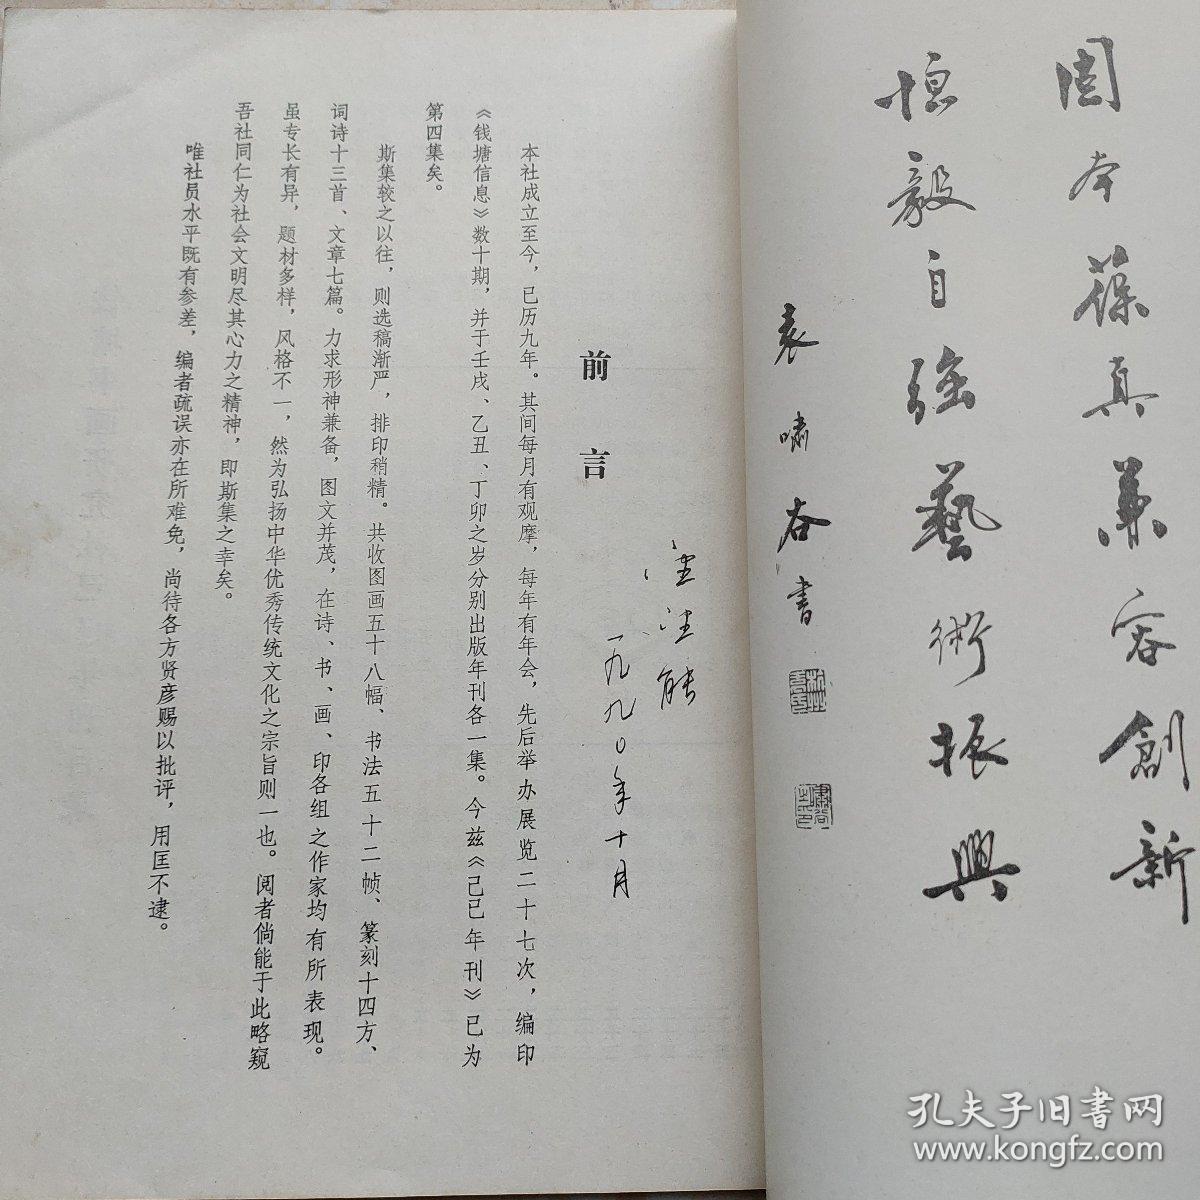 固本葆真兼容創新
恒毅自强藝術振興
袁啸谷書
前言
本社成立至今，已历九年。其间每月有观摩，每年有年会，先后举办展览二十七次，编印
《钱塘信息》数十期，并于壬戌、乙丑、丁卯之岁分别出版年刊各一集。今兹《己巳年刊》已为
第四集矣。
斯集较之以往，则选稿渐严，排印稍精。共收图画五十八幅、书法五十二帧、篆刻十四方、
词诗十三首、文章七篇。力求形神兼备，图文并茂，在诗、书、画、印各组之作家均有所表现。
虽专长有异，题材多样，风格不一，然为弘扬中华优秀传统文化之宗旨则一也。阅者倘能于此略窥
吾社同仁为社会文明尽其心力之精神，即斯集之幸矣。
唯社员水平既有参差，编者疏误亦在所难免，尚待各方贤彦赐以批评，用匡不逮。
一九九〇年十月
孔夫子旧书网
www.kongfz.com